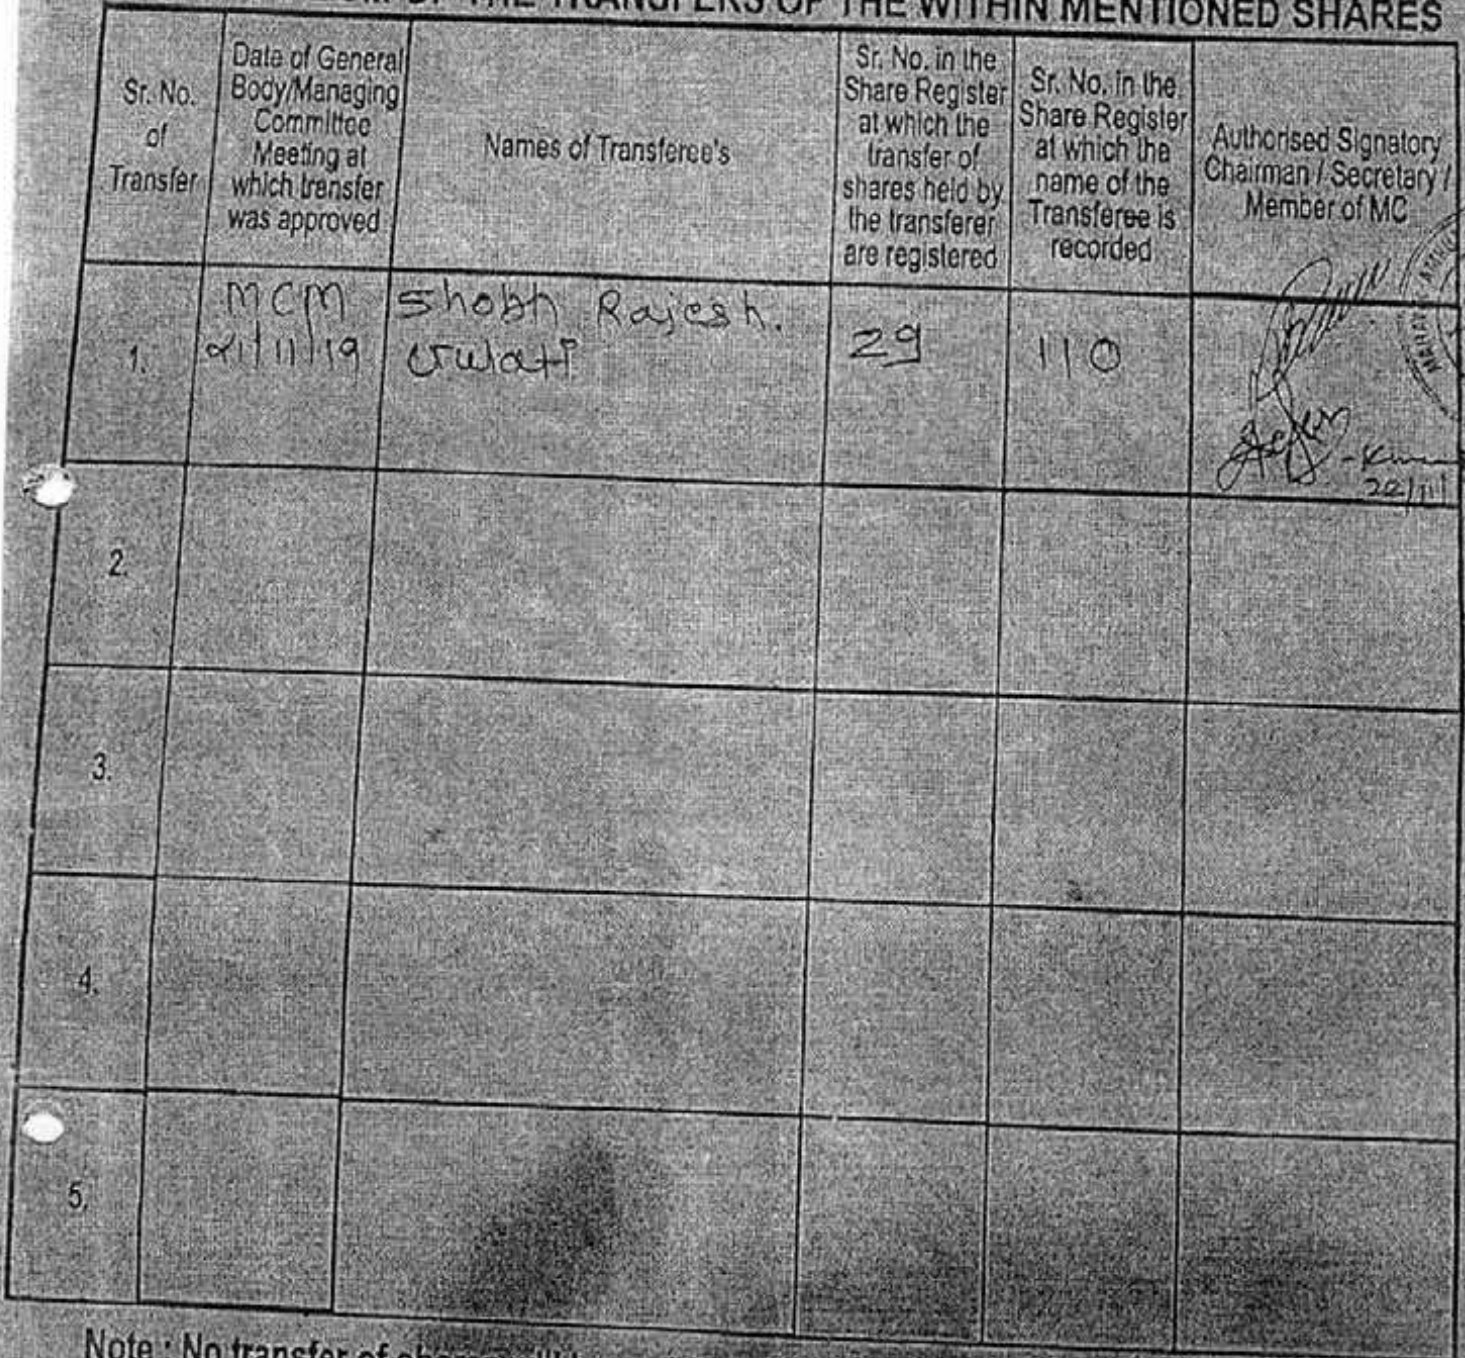 THE TRANSFERS OF THE WITHIN MENTIONED SHARES
Sr. No.
of
Transfer
Date of General
Body/Managing
Committee
Meeting at
which transfer
was approved
Names of Transferee's
Sr. No. in the
Share Register
at which the
transfer of
shares held by
the transferer
are registered
Sr. No. in the
Share Register
at which the
name of the
Transferee is
recorded
Authorised Signatory
Chairman / Secretary /
Member of MC
1.
MCM
21/11/19
Shobh Rajesh.
29
110
22/11/
2.
3.
4.
5.
Note : No transfer of